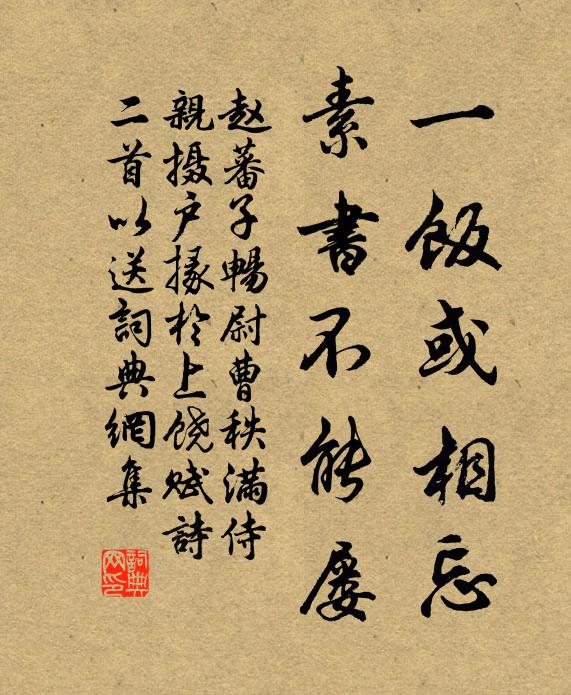 一飯或相忘
素書不能屡
赵蕃子暢尉曹秩满侍
親摄户掾於上饶赋詩
二首以送詞典網集
詞典网印